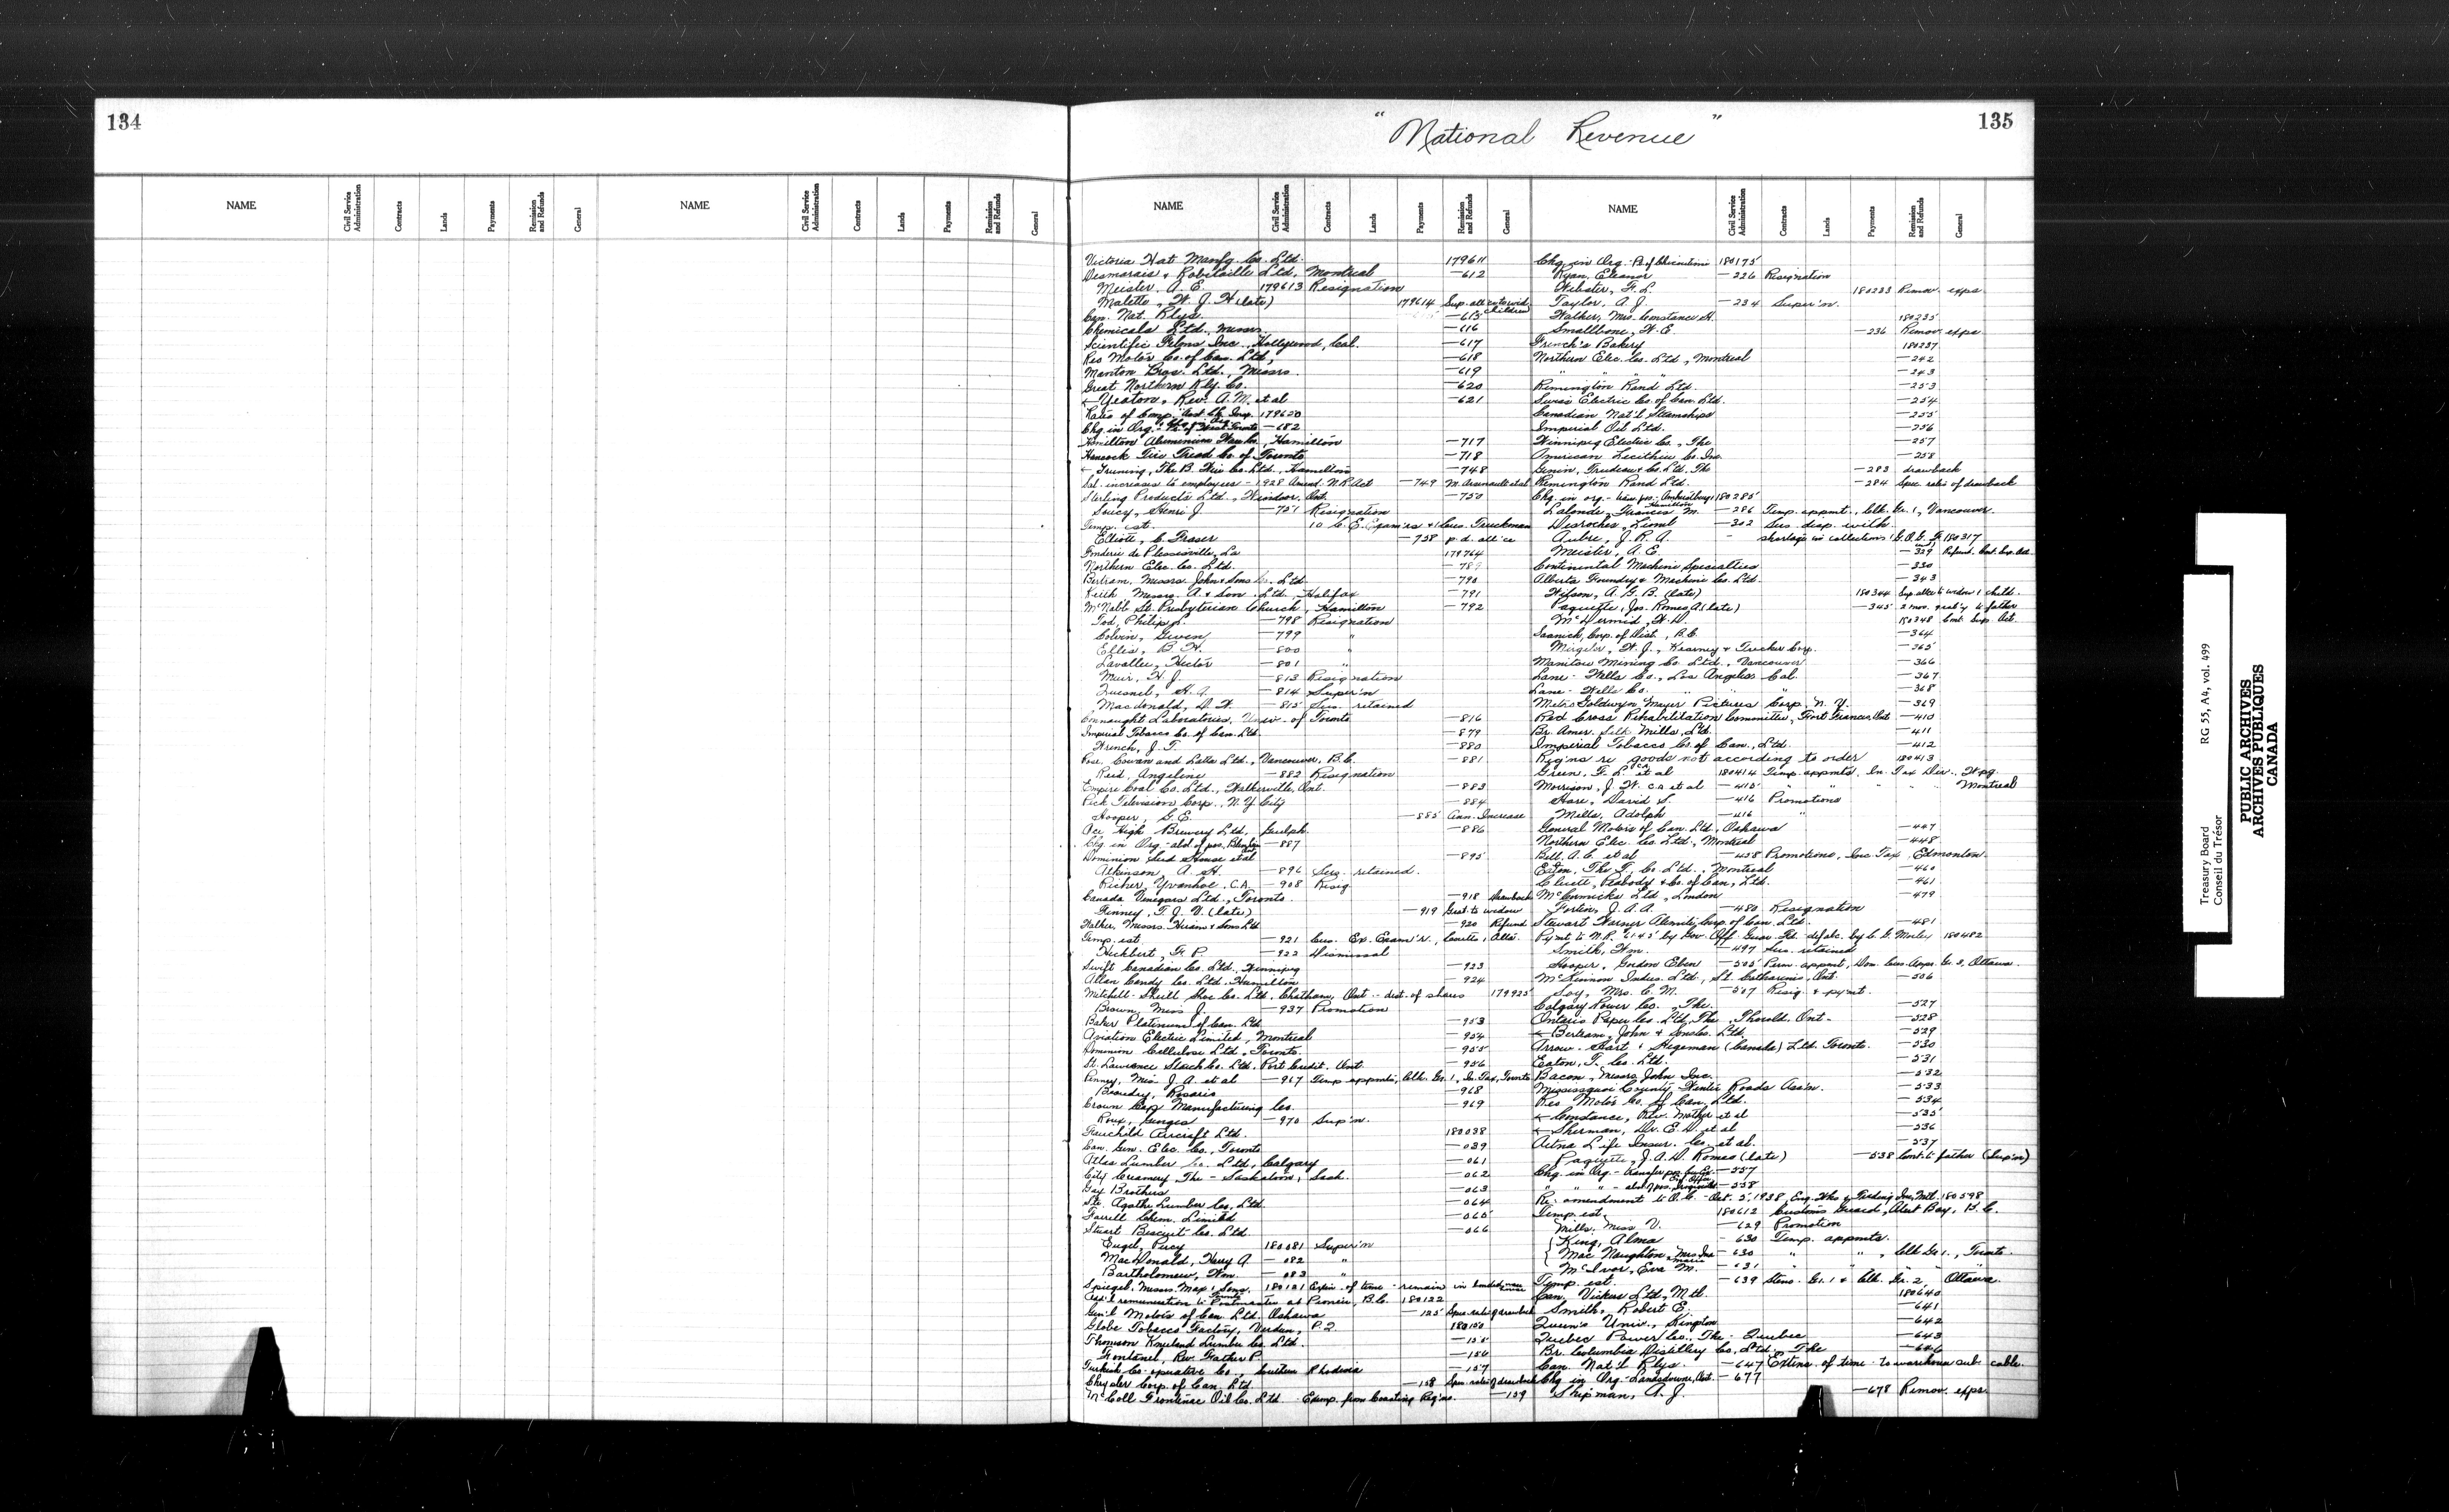 134
NAME Civil Service Administration Contracts Lands Payments Remission and Refunds General NAME Civil Service Administration Contracts Lands Payments Remission and Refunds General
"National Revenue"
135
NAME Civil Service Administration Contracts Lands Payments Remission and Refunds General
Victoria Hat Manfg. Co. Ltd. 179611
Desmarais & Robitaille Ltd. Montreal —612
Meister, A. E. 179613 Resignation
Malette, W. J. H (late) 179614 Sup. all'ce to wid. children
Can. Nat. Rlys. —615
Chemicals Ltd., Messrs. —616
Scientific Films Inc., Hollywood, Cal. —617
Reo Motor Co. of Can. Ltd., —618
Manton Bros. Ltd., Messrs. —619
Great Northern Rly. Co. —620
Yeaton, Rev. A. M. et al —621
Rates of Comp. 179620
Chg. in Org. —682
Hamilton Aluminium Ware Co., Hamilton —717
Hancock Tire Tread Co. of Toronto —718
The B. Wire Co. Ltd., Hamilton —748
Sal. increases to employees - 1928 Amend. N.R. Act —749 M. Arsenault et al
Sterling Products Ltd., Windsor, Ont. —750
Soucy, Henri J. —751 Resignation
Temp. est. 10 C. E. Exam'rs & 1 Cus. Truckman
Elliott, C. Fraser —758 p.d. all'ce
Fonderie de Plessisville, La 179764
Northern Elec. Co. Ltd. —789
Bertram, Messrs. John & Sons Co. Ltd. —790
Keith Messrs. A. & Son Ltd. Halifax —791
McNabb St. Presbyterian Church, Hamilton —792
Tod, Philip S. —798 Resignation
Colvin, Gwen —799 "
Ellis, B. H. —800 "
Lavallee, Hector —801 "
Muir, H. J. —813 Resignation
Quesnel, H. A. —814 Super'n
Macdonald, D. W. —815 Ser. retained
Connaught Laboratories, Univ. of Toronto —816
Imperial Tobacco Co. of Can. Ltd. —879
Wrench, J. T. —880
Rose, Cowan and Latta Ltd., Vancouver, B.C. —881
Reid, Angeline —882 Resignation
Empire Coal Co. Ltd., Walkerville, Ont. —883
Peck Television Corp., N. Y. City —884
Hooper, G. E. —885 Ann. Increase
Ace High Brewery Ltd. Guelph —886
Chg. in Org. - abol. of pos. —887
Dominion Seed House et al —895
Atkinson, A. H. —896 Ser. retained.
Richer, Yvanhoe, C.A. —908 Resig
Canada Vinegars Ltd., Toronto. —918 Drawback
Finney, T. J. V. (late) —919 Grat. to widow
Walker, Messrs. Hiram & Sons Ltd —920 Refund
Temp. est. —921 Cus. Ex. Exam'r, Coutts, Alta.
Hichbert, F. P. —922 Dismissal
Swift Canadian Co. Ltd., Winnipeg —923
Allan Candy Co. Ltd. Hamilton —924
Mitchell-Sheill Shoe Co. Ltd, Chatham, Ont - dist. of shares 179925
Brown, Miss J. —937 Promotion
Baker Platinum of Can. Ltd. —953
Aviation Electric Limited, Montreal —954
Dominion Cellulose Ltd., Toronto. —955
St. Lawrence Starch Co. Ltd. Port Credit, Ont. —956
Penney, Miss J. A. et al —967 Temp appmts, Clk. Gr. 1, In. Tax, Toronto
Beaudry, Rosario —968
Crown Cap Manufacturing Co. —969
Roux, Georges —970 Sup'n.
Fairchild Aircraft Ltd. 180038
Can. Gen. Elec. Co., Toronto —039
Atlas Lumber Co. Ltd, Calgary —061
City Creamery The - Saskatoon, Sask. —062
Gay Brothers —063
Ste. Agathe Lumber Co. Ltd. —064
Farrell Chem. Limited —065
Stuart Biscuit Co. Ltd. —066
Engel, Percy 180081 Super'n
MacDonald, Harry A. —082 "
Bartholomew, Wm. —083 "
Spiegel, Messrs. Max & Sons, 180121 Exten. of time - remain in bonded
Add'l remuneration to Postmaster at Premier, B.C. 180122
Gen'l Motors of Can. Ltd. Oshawa —125 Spec. rate of drawback
Globe Tobacco Factory, Verdun, P.Q. 180150
Thomson Kneeland Lumber Co. Ltd. —155
Fontanel, Rev. Father P. —156
Turkish Co-operative Co., Southern Rhodesia —157
Chrysler Corp. of Can. Ltd. —158 Spec. rate of drawback
McColl Frontenac Oil Co. Ltd. Exemp. from Coasting Reg'ns. —159
NAME Civil Service Administration Contracts Lands Payments Remission and Refunds General
Chg. in Org. 180175
Ryan, Eleanor —226 Resignation
Webster, F. L. 180233 Remov. exps.
Taylor, A. J. —234 Super'n.
Walker, Mrs. Constance H. 180235
Smallbone, W. E. —236 Remov. exps
French's Bakery 180237
Northern Elec. Co. Ltd., Montreal —242
" " " —243
Remington Rand Ltd. —253
Swiss Electric Co. of Can. Ltd. —254
Canadian Nat'l Steamships —255
Imperial Oil Ltd. —256
Winnipeg Electric Co., The —257
American Lecithin Co. Inc. —258
Genin, Trudeau & Co. Ltd. The —283 drawback
Remington Rand Ltd. —284 Spec. rate of drawback
Chg. in org. - Amherstburg 180285
Lalonde, Francis M. —286 Temp. appmt., Clk. Gr. 1, Vancouver.
Desroches, Lionel —302 Ser. disp. with.
Aubre, J. R. A. shortage in collections 180317
Meister, A. E. —329 Refund
Continental Machine Specialties —330
Alberta Foundry & Machine Co. Ltd. —343
Wilson, A. G. B. (late) 180344 Sup. all'ce to widow 1 child.
Paquette, Jos. Romeo A (late) —345 2 mos. sal'y to father
McDermid, W. D. 180348 Cont. Sup. Act.
Saanich, Corp. of Dist., B.C. —364
W. J., Kearney & Trecker Corp. —365
Manitou Mining Co. Ltd., Vancouver —366
Lane-Wells Co., Los Angeles Cal. —367
Lane-Wells Co. " " " —368
Metro Goldwyn Mayer Pictures Corp. N. Y. —369
Red Cross Rehabilitation Committee, Fort Frances, Ont —410
Br. Amer. Silk Mills, Ltd. —411
Imperial Tobacco Co. of Can., Ltd. —412
Reg'ns re goods not according to order 180413
Green, F. L. C.A. et al 180414 Temp. appmts, In. Tax Div., Wpg.
Morrison, J. W. C.A. et al —415 " " " " Montreal
Hare, David S. —416 Promotions
Mills, Adolph —416 "
General Motors of Can. Ltd., Oshawa —447
Northern Elec. Co. Ltd., Montreal —448
Bell, A. C. et al —458 Promotions, Inc. Tax, Edmonton.
Eaton, The T. Co. Ltd., Montreal —460
Cluett, Peabody & Co. of Can, Ltd. —461
McCormicks Ltd, London —479
Fortin, J. A. A. —480 Resignation
Stewart Warner Alemite Corp. of Can. Ltd. —481
Pymt to N.R. by Gov. Off. Guar. Fd. defalc. by C. G. Morley 180482
Smith, Wm. —497 Ser. retained
Hooper, Gordon Eben —505 Perm. appmt, Dom. Cus. Appr. Gr. 3, Ottawa.
McKinnon Indus. Ltd, St. Catharines, Ont. —506
Soy, Mrs. C. M. —507 Resig. & pymt.
Calgary Power Co. The. —527
Ontario Paper Co. Ltd, The, Thorold, Ont. —528
Bertram, John & Sons Co. Ltd. —529
Arrow-Hart & Hegeman (Canada) Ltd. Toronto. —530
Eaton, T. Co. Ltd. —531
Bacon, Messrs John Inc. —532
Mississquoi County Winter Roads Ass'n. —533
Reo Motor Co. of Can. Ltd. —534
Constance, Rev. Mother et al —535
Sherman, Dr. E. D. et al —536
Aetna Life Insur. Co. et al. —537
Paquette, J. A. D. Romeo (late) —538 Cont. to father (Sup'n)
Chg. in Org. - transfer —557
" " " - abol. of pos. —558
Re: amendment to O.C. - Oct. 5, 1938, Eng. Wks & Trading Inc, Mtl. 180598
Temp. est. 180612 Customs Guard, Alert Bay, B.C.
Mills, Miss V. —629 Promotion
King, Alma —630 Temp. appmts.
MacNaughton, Mrs Ina —630 " ", Clk Gr 1., Toronto.
McIvor, Eva M. —631 " "
Temp. est. —639 Steno. Gr. 1 & Clk. Gr. 2, Ottawa
Can. Vickers Ltd, Mtl. 180640
Smith, Robert E. —641
Queen's Univ., Kingston —642
Quebec Power Co., The - Quebec —643
Br. Columbia Distillery Co. Ltd. The —646
Can. Nat'l Rlys. —647 Extens. of time to warehouse sub. cable.
Chg. in Org. - Landsdowne, Ont. —677
Shipman, A. J. —678 Remov. exps.
Treasury Board RG 55, A4, vol. 499
Conseil du Trésor
PUBLIC ARCHIVES
ARCHIVES PUBLIQUES
CANADA